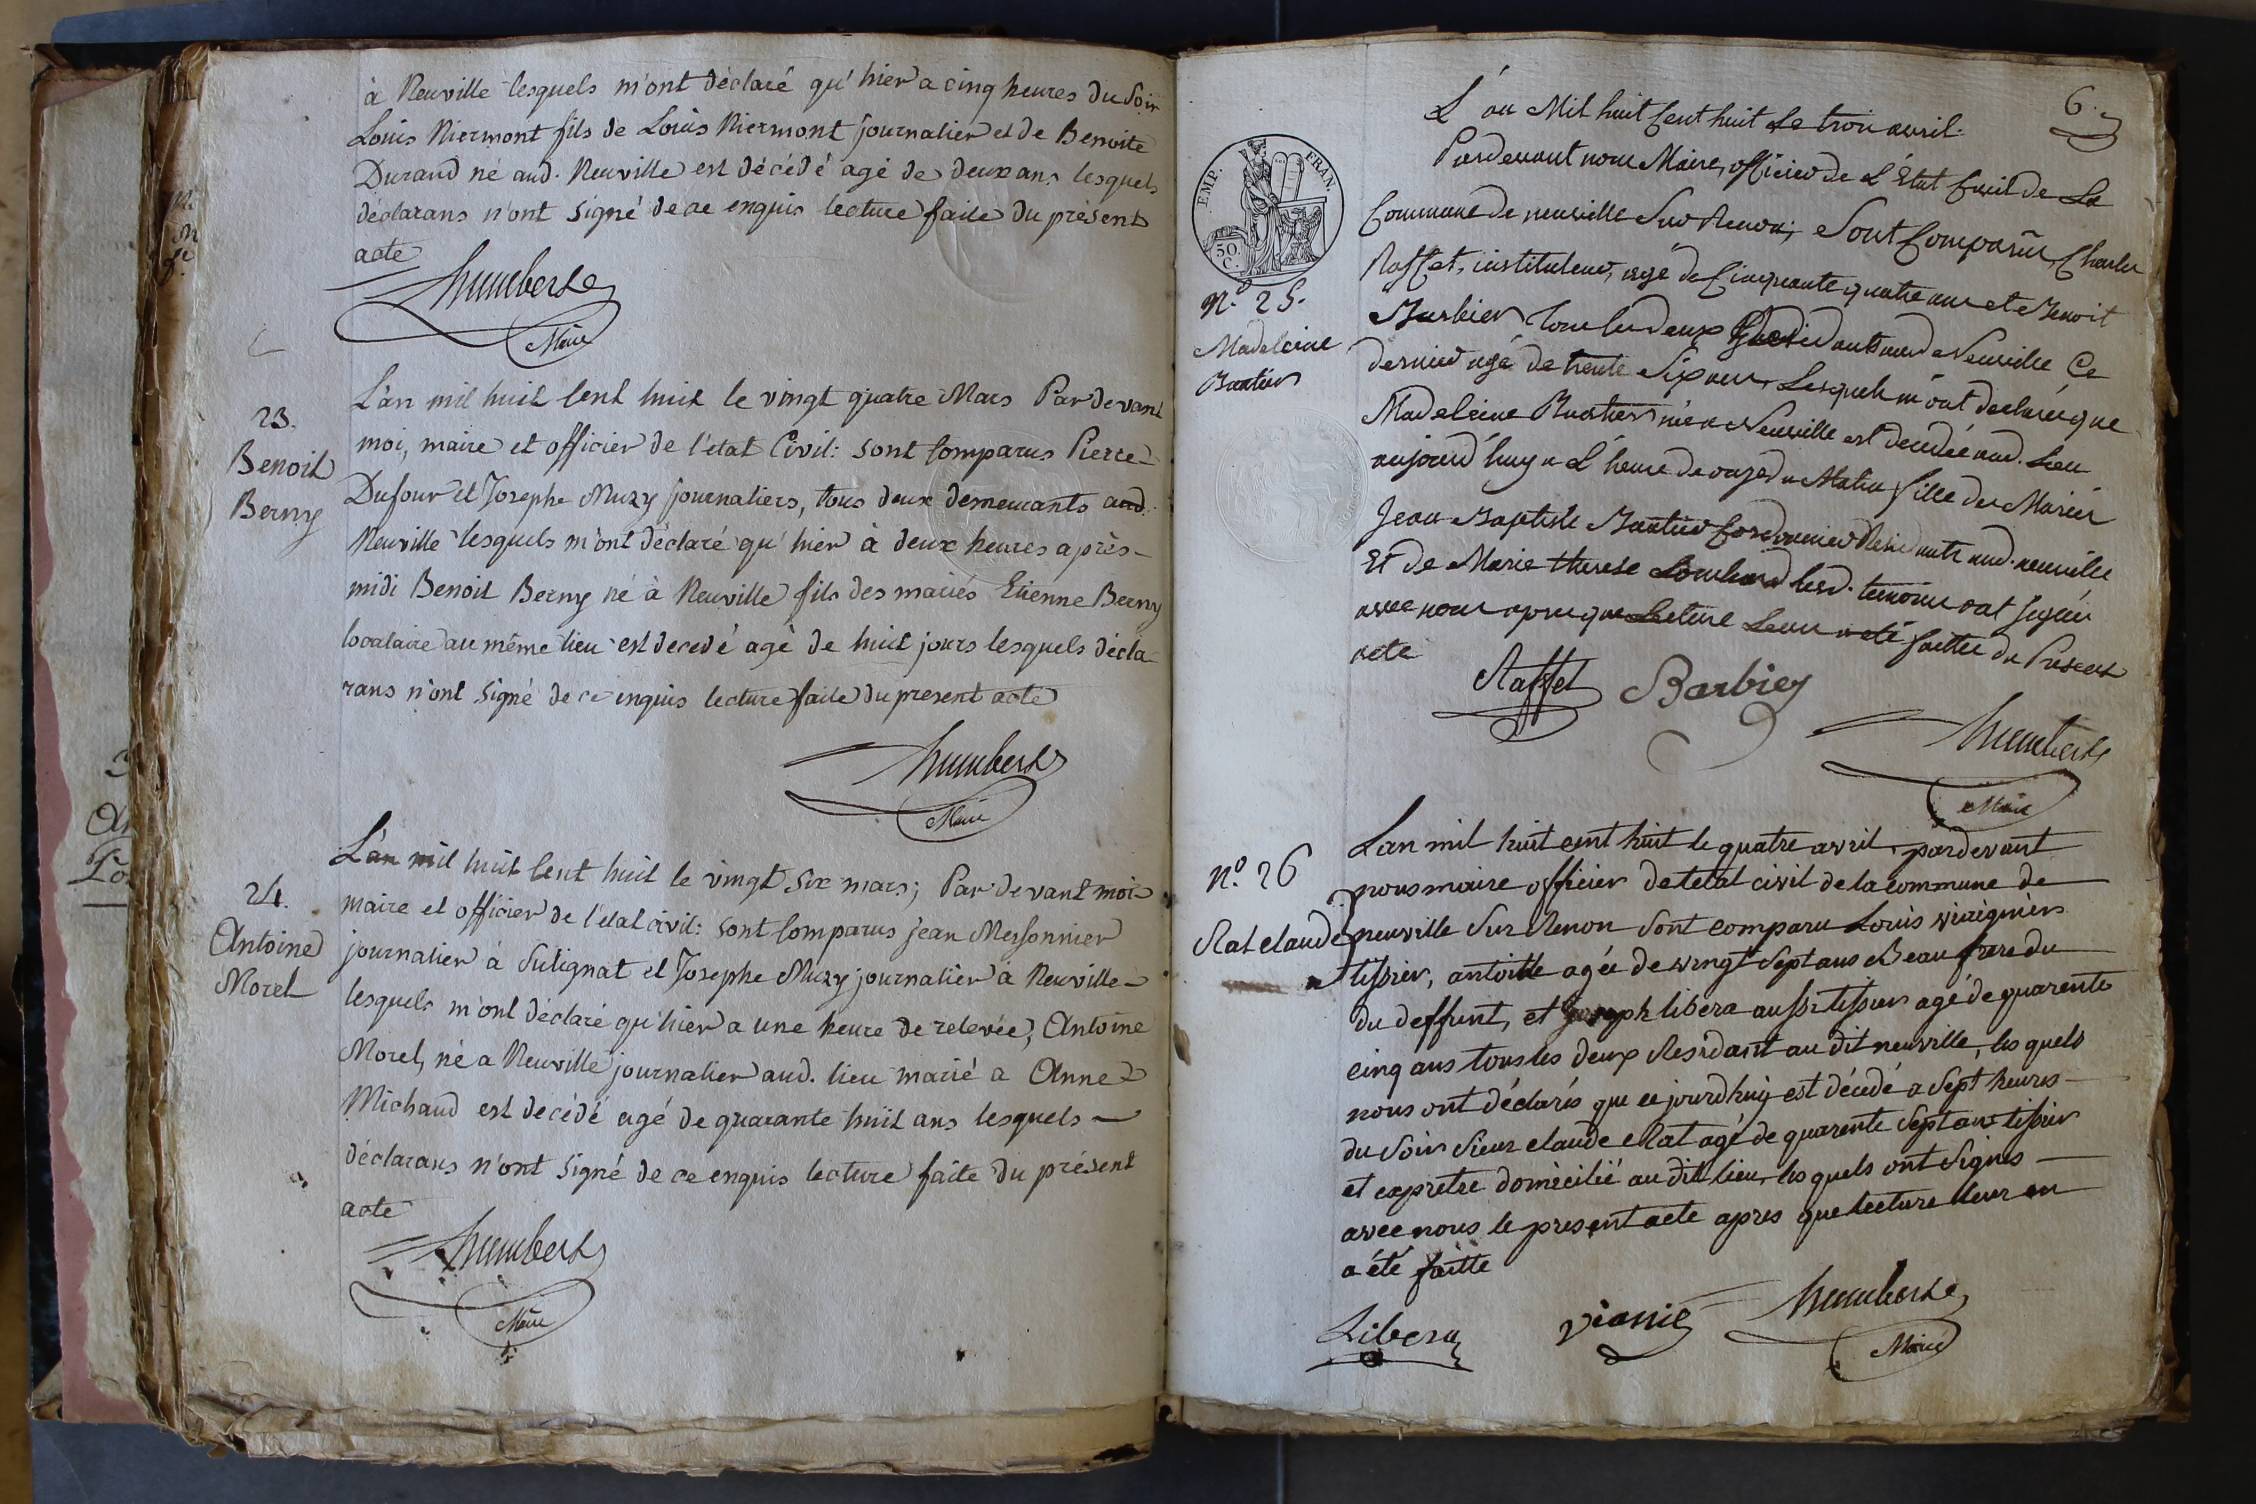 à Neuville lesquels m'ont déclaré qu'hier a cinq heures du Soir
Louis Niermont fils de Louis Niermont journalier et de Benoite
Durand né aud. Neuville est décédé agé de deux ans lesquels
déclarans n'ont signé de ce enquis lecture faite du présent
acte
humberte
Maire
23.
Benoit
Berny
L'an mil huit cent huit le vingt quatre Mars Par devant
moi, maire et officier de l'état Civil: sont comparus Pierre
Dufour et Josephe Muzy journaliers, tous deux demeurants aud.
Neuville lesquels m'ont déclaré qu'hier à deux heures après-
midi Benoit Berny né à Neuville fils des mariés Etienne Berny
localaire au même lieu est decedé agé de huit jours lesquels décla-
rans n'ont signé de ce enquis lecture faite du present acte
humberte
Maire
24.
Antoine
Morel
L'an mil huit cent huit le vingt six mars; Par devant moi
maire et officier de l'état civil: sont comparus jean Messonnier
journalier à Sulignat et Josephe Muzy journalier à Neuville
lesquels m'ont déclaré qu'hier a une heure de relevée, Antoine
Morel, né a Neuville journalier aud. lieu marié a Anne
Michaud est decédé agé de quarante huit ans lesquels
déclarans n'ont signé de ce enquis lecture faite du présent
acte
humberte
Maire
6.
EMP. FRAN.
50 C.
N.° 25.
Madeleine
L'an Mil huit Cent huit Le trois avril.
Pardevant nous Maire, officier de L'État Civil de La
Commune de neuville Sur Renon; Sont Comparus Charles
Raffet, instituteur, agé de Cinquante quatre ans et Benoit
Barbier tous les deux Residants aud Neuville Ce
dernier agé de trente Six ans, Lesquels m'ont declarés que
Madeleine née a Neuville est decedée aud. Lieu
aujourd'huy a L'heure de onze du Matin fille des Mariés
Jean Baptiste Cordonnier Residants aud. neuville
Et de Marie therese lesd. temoins ont signés
avec nous apres que Lecture Leur a été faitte du Present
acte
Raffet Barbier
humberte
Maire
N.° 26
Rat claude
Lan mil huit cent huit le quatre avril, pardevant
nous maire officier de letat civil de la commune de
neuville Sur Renon Sont comparu Louis
tissier, agée de vingt Sept ans Beau frere du
du deffunt, et Joseph libera aussi tissier agé de quarente
cinq ans tous les deux Residant au dit neuville, les quels
nous ont déclarés que ce jourdhuy est décédé a Sept heures
du Soir Sieur claude Rat agé de quarente Sept ans tissier
et expretre domicilié au dit lieu, les quels ont Signés
avec nous le present acte apres que lecture leur en
a été faitte
Libera vianie humberte
Maire